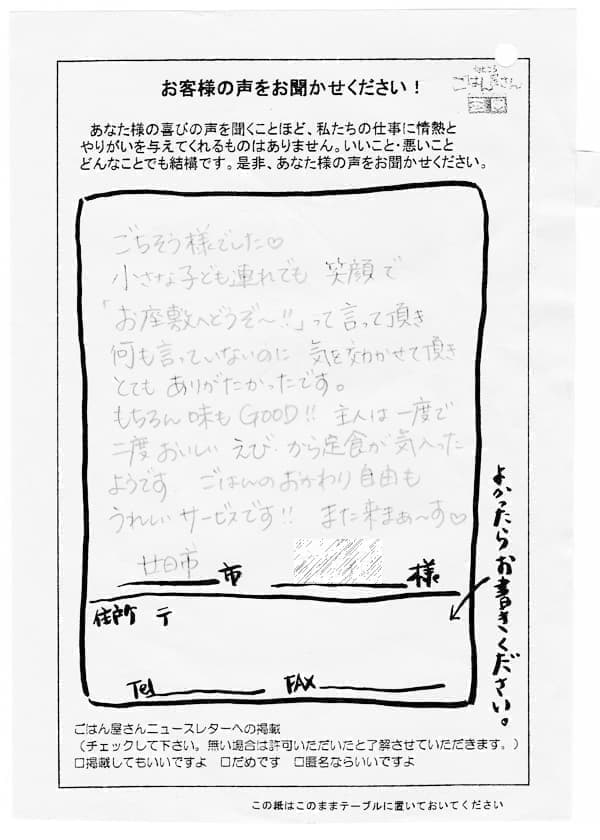 お客様の声をお聞かせください！
ごはん屋さん
あなた様の喜びの声を聞くことほど、私たちの仕事に情熱と
やりがいを与えてくれるものはありません。いいこと・悪いこと
どんなことでも結構です。是非、あなた様の声をお聞かせください。
ごちそう様でした♡
小さな子ども連れでも 笑顔で
「お座敷へどうぞ〜!!」って言って頂き
何も言っていないのに 気を効かせて頂き
とても ありがたかったです。
もちろん味もGOOD!! 主人は一度で
二度おいしい えび・から定食が気入った
ようです ごはんのおかわり自由も
うれしい サービスです!! また来まぁ〜す♡
廿日市 市 様
よかったらお書きください。
住所 〒
Tel FAX
ごはん屋さんニュースレターへの掲載
（チェックして下さい。無い場合は許可いただいたと了解させていただきます。）
□掲載してもいいですよ □だめです □匿名ならいいですよ
この紙はこのままテーブルに置いておいてください